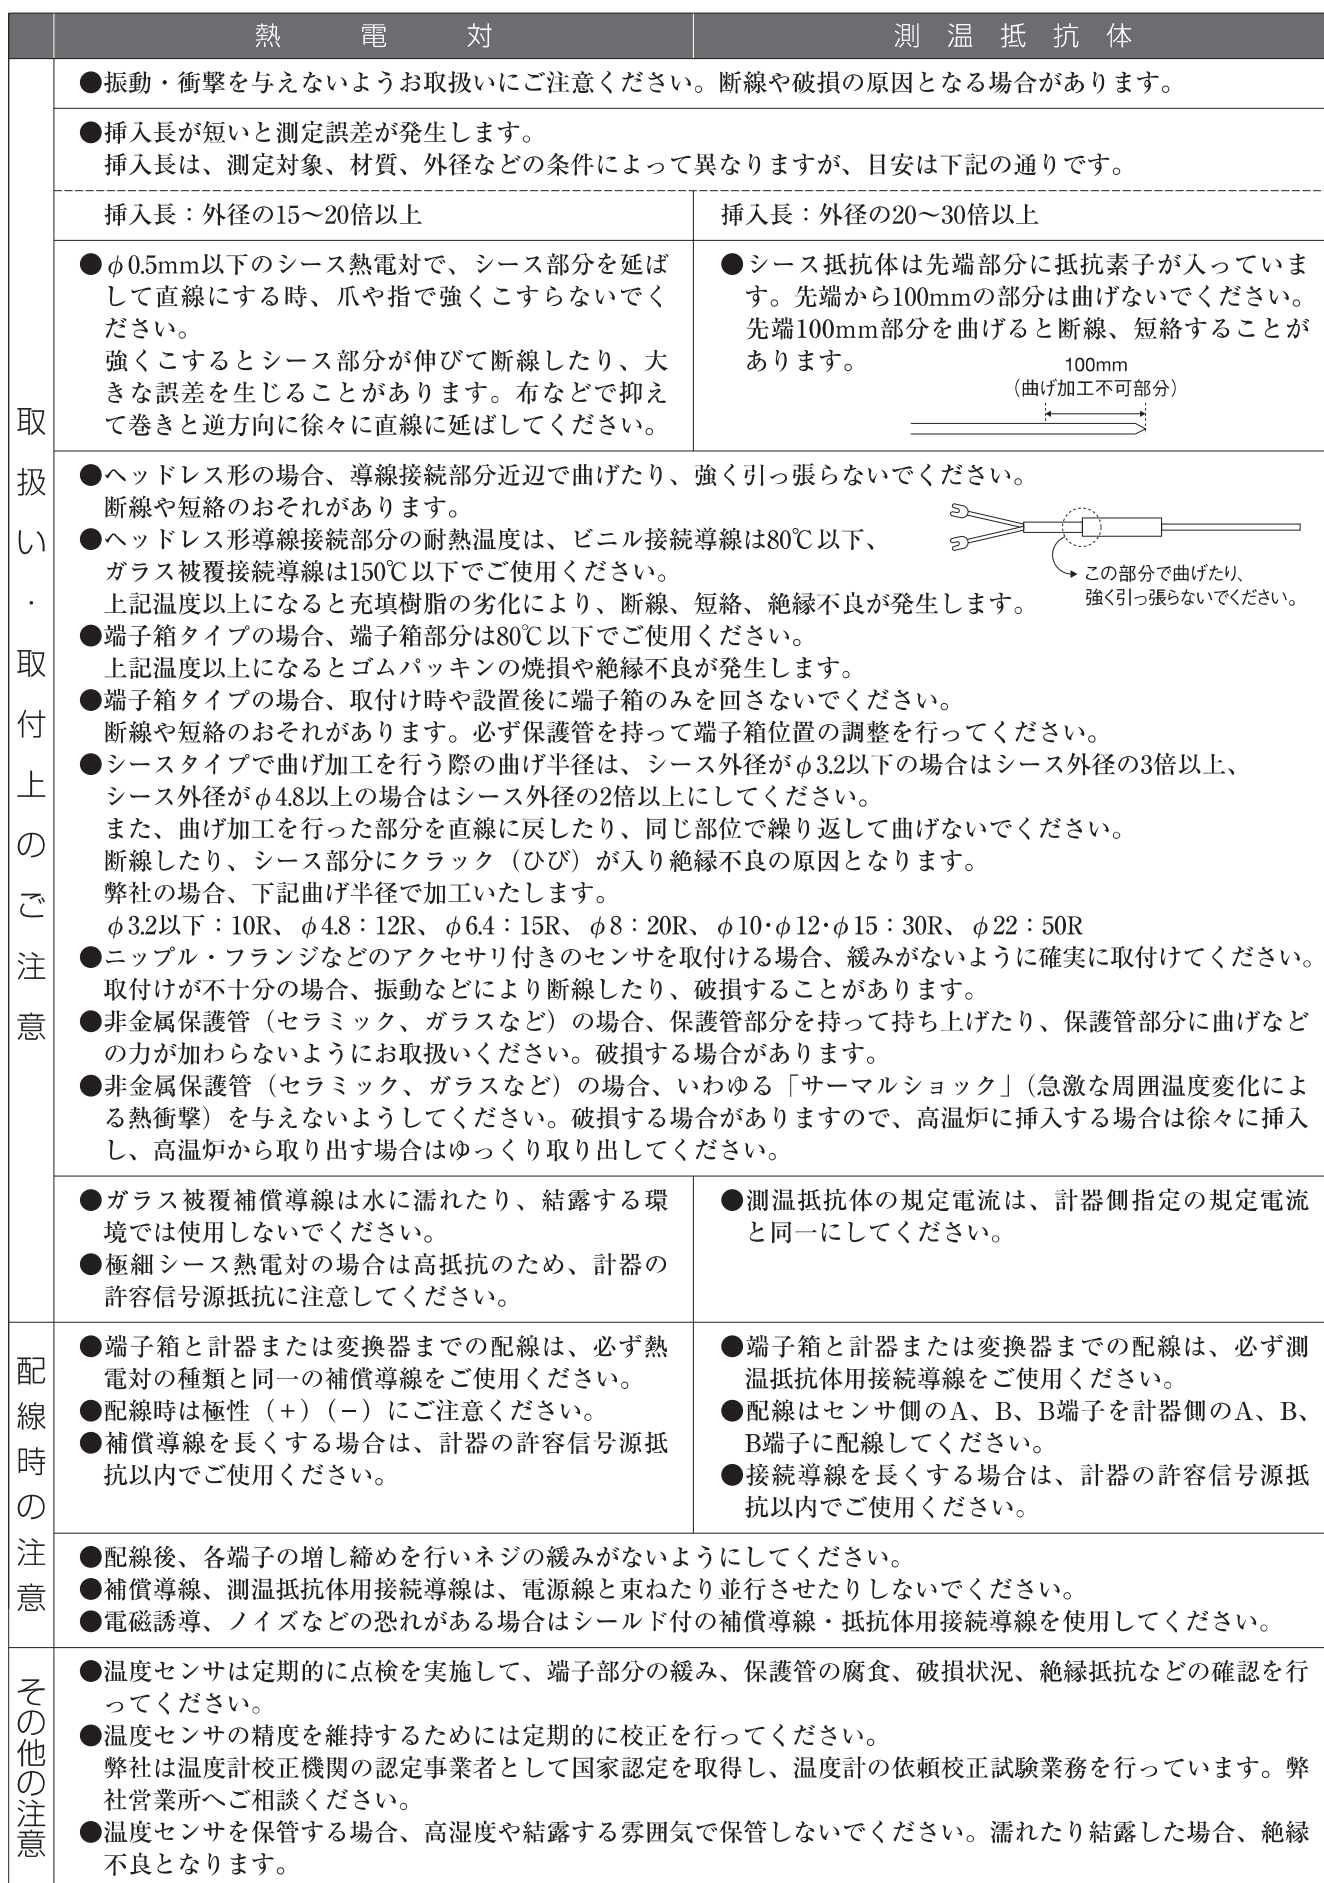 熱電対
測温抵抗体
取扱い・取付上のご注意
●振動・衝撃を与えないようお取扱いにご注意ください。断線や破損の原因となる場合があります。
●挿入長が短いと測定誤差が発生します。
挿入長は、測定対象、材質、外径などの条件によって異なりますが、目安は下記の通りです。
挿入長：外径の15～20倍以上
挿入長：外径の20～30倍以上
●φ0.5mm以下のシース熱電対で、シース部分を延ば
して直線にする時、爪や指で強くこすらないでく
ださい。
強くこするとシース部分が伸びて断線したり、大
きな誤差を生じることがあります。布などで抑え
て巻きと逆方向に徐々に直線に延ばしてください。
●シース抵抗体は先端部分に抵抗素子が入っていま
す。先端から100mmの部分は曲げないでください。
先端100mm部分を曲げると断線、短絡することが
あります。
100mm
（曲げ加工不可部分）
●ヘッドレス形の場合、導線接続部分近辺で曲げたり、強く引っ張らないでください。
断線や短絡のおそれがあります。
●ヘッドレス形導線接続部分の耐熱温度は、ビニル接続導線は80℃以下、
ガラス被覆接続導線は150℃以下でご使用ください。
上記温度以上になると充填樹脂の劣化により、断線、短絡、絶縁不良が発生します。
この部分で曲げたり、
強く引っ張らないでください。
●端子箱タイプの場合、端子箱部分は80℃以下でご使用ください。
上記温度以上になるとゴムパッキンの焼損や絶縁不良が発生します。
●端子箱タイプの場合、取付け時や設置後に端子箱のみを回さないでください。
断線や短絡のおそれがあります。必ず保護管を持って端子箱位置の調整を行ってください。
●シースタイプで曲げ加工を行う際の曲げ半径は、シース外径がφ3.2以下の場合はシース外径の3倍以上、
シース外径がφ4.8以上の場合はシース外径の2倍以上にしてください。
また、曲げ加工を行った部分を直線に戻したり、同じ部位で繰り返して曲げないでください。
断線したり、シース部分にクラック（ひび）が入り絶縁不良の原因となります。
弊社の場合、下記曲げ半径で加工いたします。
φ3.2以下：10R、φ4.8：12R、φ6.4：15R、φ8：20R、φ10･φ12･φ15：30R、φ22：50R
●ニップル・フランジなどのアクセサリ付きのセンサを取付ける場合、緩みがないように確実に取付けてください。
取付けが不十分の場合、振動などにより断線したり、破損することがあります。
●非金属保護管（セラミック、ガラスなど）の場合、保護管部分を持って持ち上げたり、保護管部分に曲げなど
の力が加わらないようにお取扱いください。破損する場合があります。
●非金属保護管（セラミック、ガラスなど）の場合、いわゆる「サーマルショック」（急激な周囲温度変化によ
る熱衝撃）を与えないようしてください。破損する場合がありますので、高温炉に挿入する場合は徐々に挿入
し、高温炉から取り出す場合はゆっくり取り出してください。
●ガラス被覆補償導線は水に濡れたり、結露する環
境では使用しないでください。
●極細シース熱電対の場合は高抵抗のため、計器の
許容信号源抵抗に注意してください。
●測温抵抗体の規定電流は、計器側指定の規定電流
と同一にしてください。
配線時の注意
●端子箱と計器または変換器までの配線は、必ず熱
電対の種類と同一の補償導線をご使用ください。
●配線時は極性（+）（−）にご注意ください。
●補償導線を長くする場合は、計器の許容信号源抵
抗以内でご使用ください。
●端子箱と計器または変換器までの配線は、必ず測
温抵抗体用接続導線をご使用ください。
●配線はセンサ側のA、B、B端子を計器側のA、B、
B端子に配線してください。
●接続導線を長くする場合は、計器の許容信号源抵
抗以内でご使用ください。
●配線後、各端子の増し締めを行いネジの緩みがないようにしてください。
●補償導線、測温抵抗体用接続導線は、電源線と束ねたり並行させたりしないでください。
●電磁誘導、ノイズなどの恐れがある場合はシールド付の補償導線・抵抗体用接続導線を使用してください。
その他の注意
●温度センサは定期的に点検を実施して、端子部分の緩み、保護管の腐食、破損状況、絶縁抵抗などの確認を行
ってください。
●温度センサの精度を維持するためには定期的に校正を行ってください。
弊社は温度計校正機関の認定事業者として国家認定を取得し、温度計の依頼校正試験業務を行っています。弊
社営業所へご相談ください。
●温度センサを保管する場合、高湿度や結露する雰囲気で保管しないでください。濡れたり結露した場合、絶縁
不良となります。